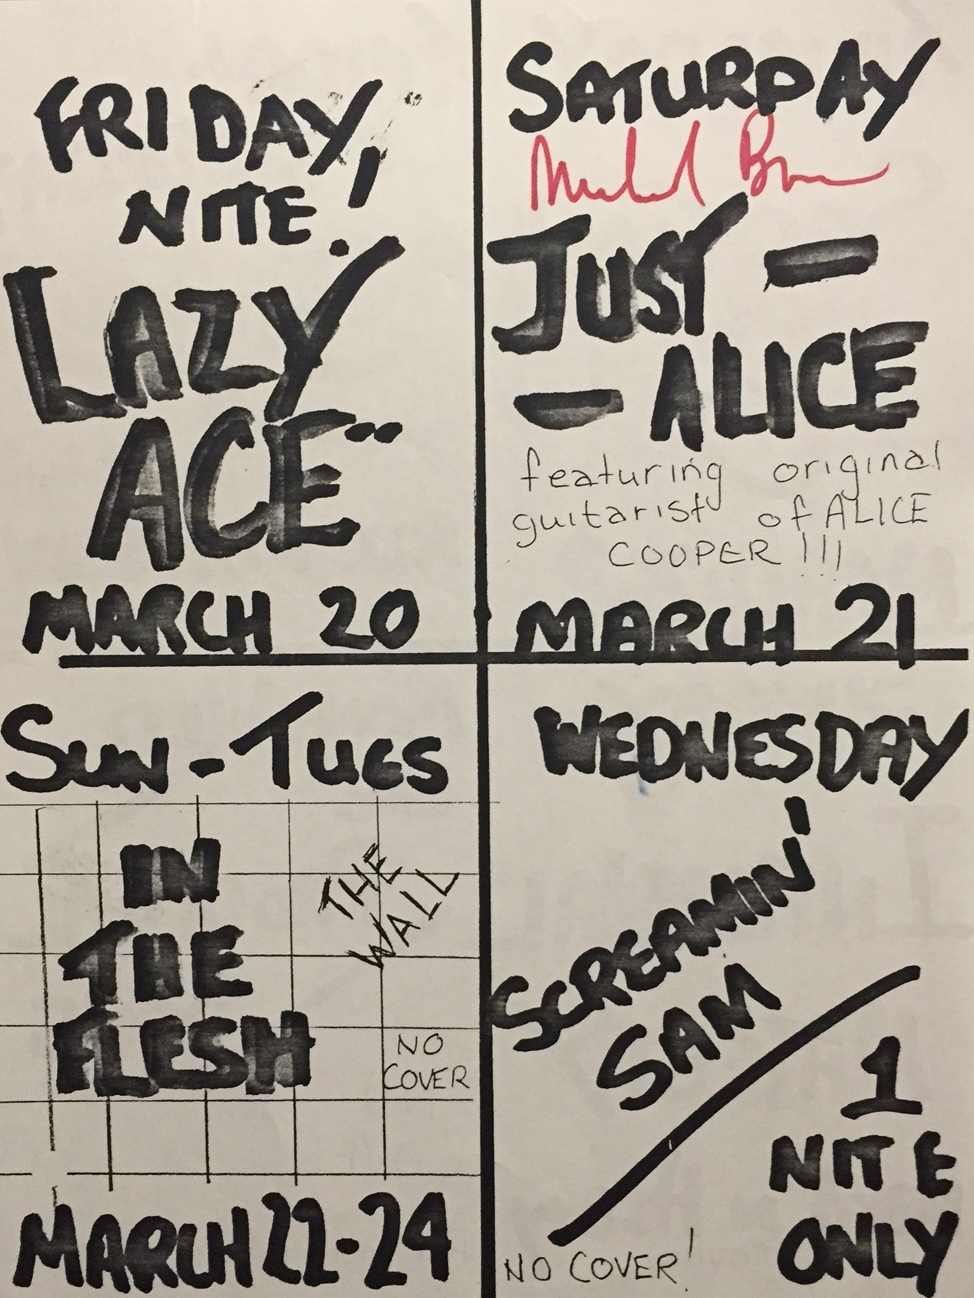 FRIDAY,
NITE!
LAZY
ACE"
MARCH 20
SATURDAY
JUST -
- ALICE
featuring original
guitarist of ALICE
COOPER!!!
MARCH 21
SUN-TUES
IN
THE
FLESH
THE
WALL
NO
COVER
MARCH 22-24
WEDNESDAY
SCREAMIN'
SAM
1
NITE
ONLY
NO COVER!